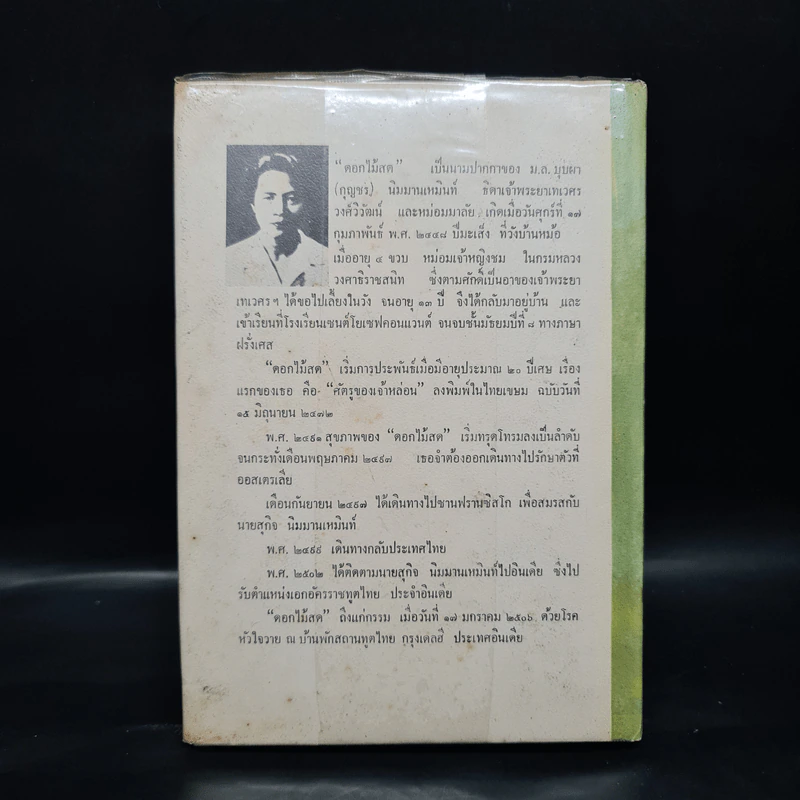 “ดอกไม้สด” เป็นนามปากกาของ ม.ล. บุปผา
(กุญชร) นิมมานเหมินท์ ธิดาเจ้าพระยาเทเวศร
วงศ์วิวัฒน์ และหม่อมมาลัย เกิดเมื่อวันศุกร์ที่ ๑๗
กุมภาพันธ์ พ.ศ. ๒๔๔๘ ปีมะเส็ง ที่วังบ้านหม้อ
เมื่ออายุ ๔ ขวบ หม่อมเจ้าหญิงชม ในกรมหลวง
วงศาธิราชสนิท ซึ่งตามศักดิ์เป็นอาของเจ้าพระยา
เทเวศร ฯ ได้ขอไปเลี้ยงในวัง จนอายุ ๑๓ ปี จึงได้กลับมาอยู่บ้าน และ
เข้าเรียนที่โรงเรียนเซนต์โยเซฟคอนแวนต์ จนจบชั้นมัธยมปีที่ ๘ ทางภาษา
ฝรั่งเศส
“ดอกไม้สด” เริ่มการประพันธ์เมื่อมีอายุประมาณ ๒๐ ปีเศษ เรื่อง
แรกของเธอ คือ “ศัตรูของเจ้าหล่อน” ลงพิมพ์ในไทยเขษม ฉบับวันที่
๑๕ มิถุนายน ๒๔๗๒
พ.ศ. ๒๔๙๑ สุขภาพของ “ดอกไม้สด” เริ่มทรุดโทรมลงเป็นลำดับ
จนกระทั่งเดือนพฤษภาคม ๒๔๙๗ เธอจำต้องออกเดินทางไปรักษาตัวที่
ออสเตรเลีย
เดือนกันยายน ๒๔๙๗ ได้เดินทางไปซานฟรานซิสโก เพื่อสมรสกับ
นายสุกิจ นิมมานเหมินท์
พ.ศ. ๒๔๙๙ เดินทางกลับประเทศไทย
พ.ศ. ๒๕๐๒ ได้ติดตามนายสุกิจ นิมมานเหมินท์ไปอินเดีย ซึ่งไป
รับตำแหน่งเอกอัครราชทูตไทย ประจำอินเดีย
“ดอกไม้สด” ถึงแก่กรรม เมื่อวันที่ ๑๗ มกราคม ๒๕๐๖ ด้วยโรค
หัวใจวาย ณ บ้านพักสถานทูตไทย กรุงเดลฮี ประเทศอินเดีย